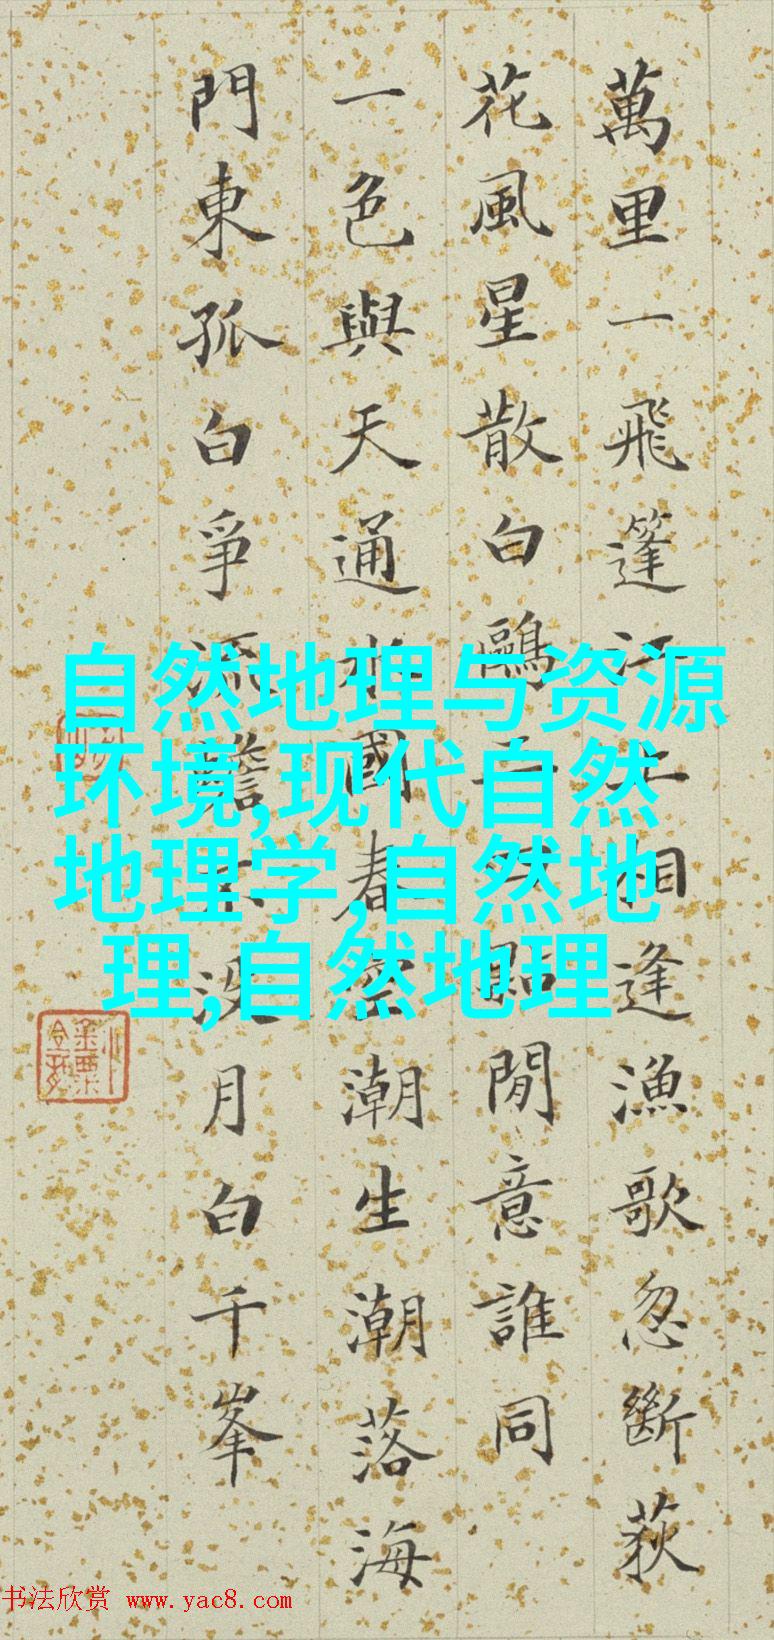 萬里一飛篷江上相逢漁歌忽斷荻
花風星散白鷗點閒意誰同
一色與天通水國春空潮生潮落海
門東孤白爭流蟾不沒月白千峯
自然地理与资源
环境,现代自然
地理学,自然地
理,自然地理
书法欣赏 www.yac8.com